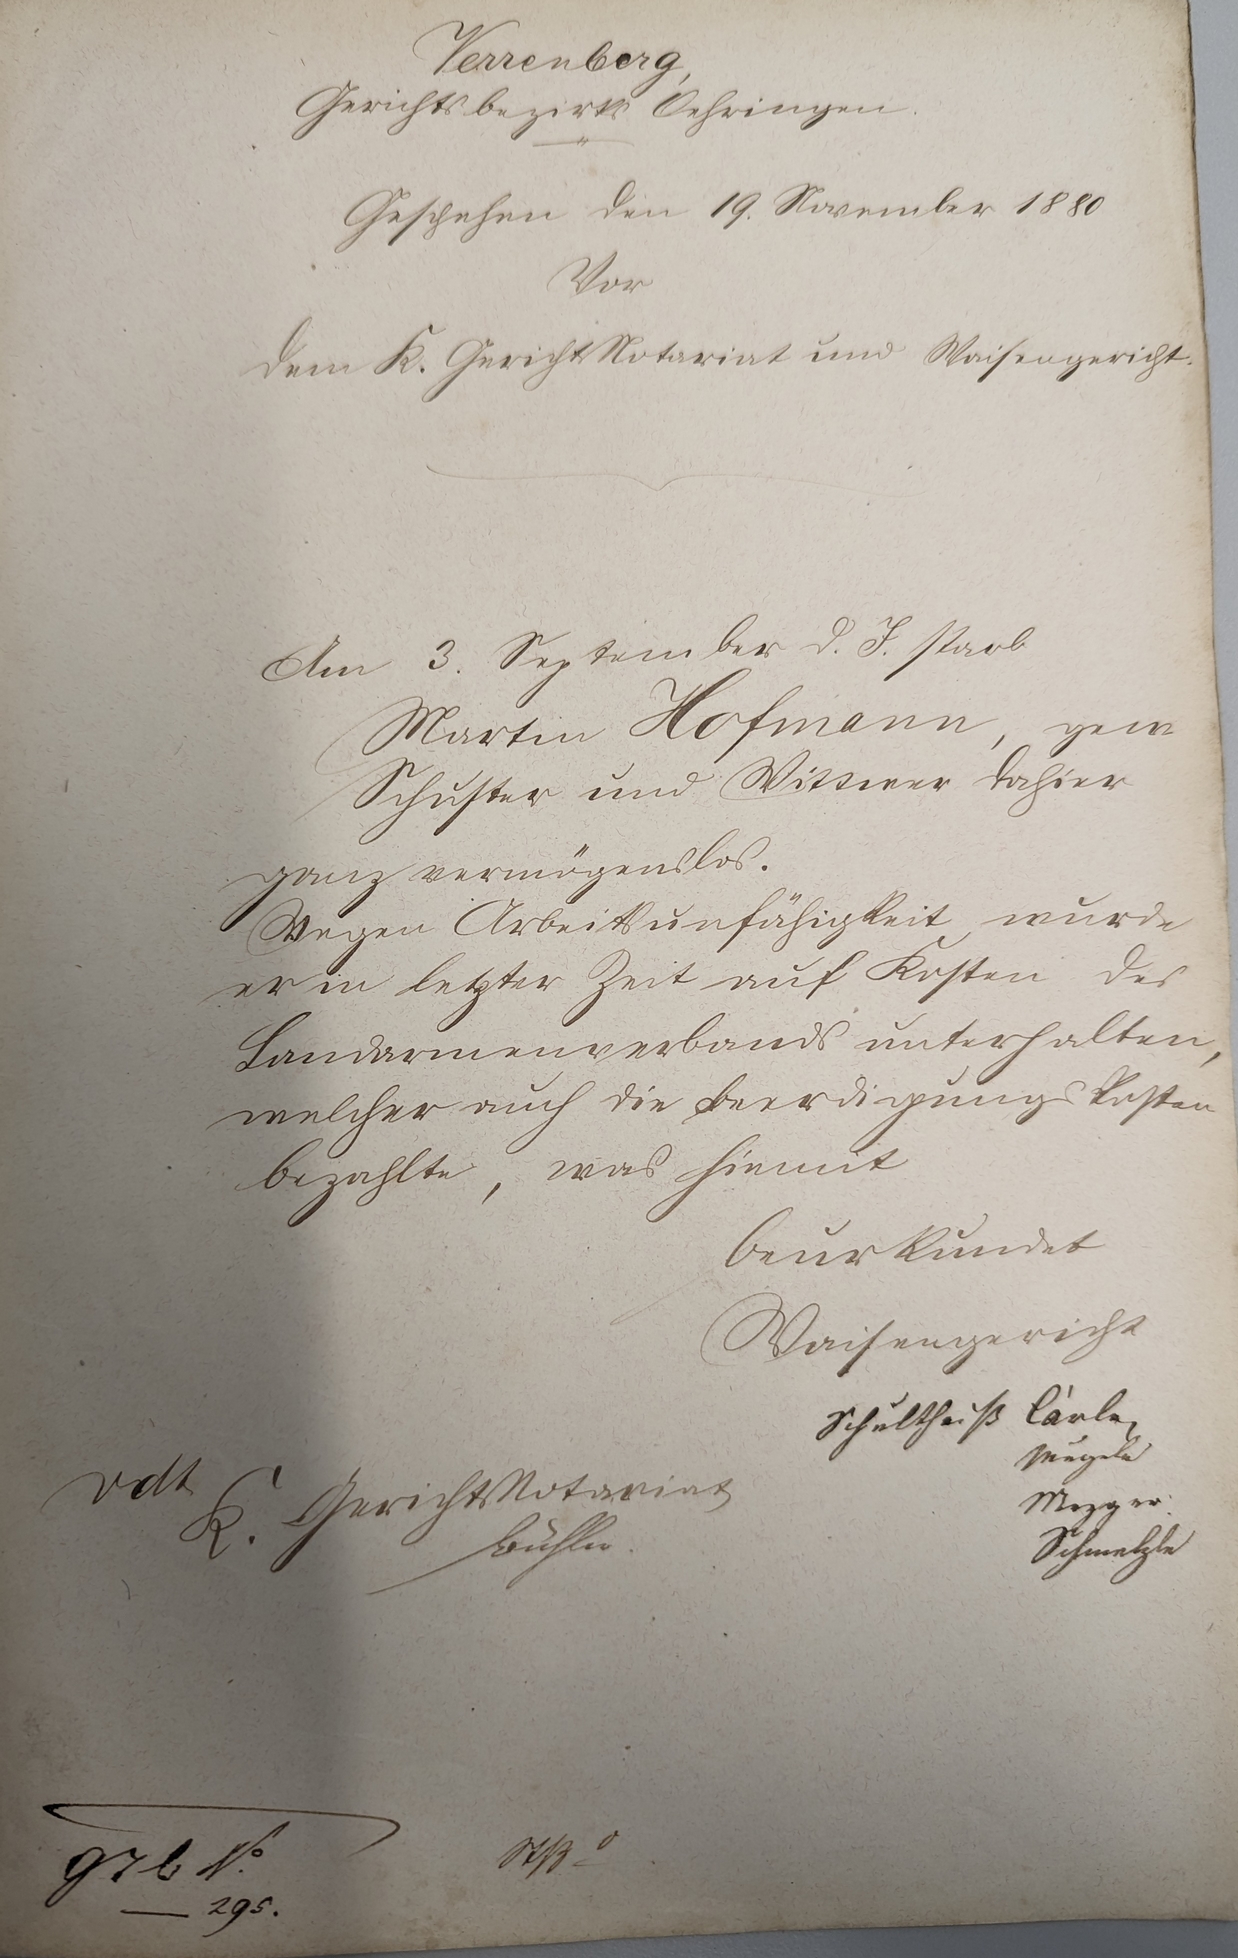 Verrenberg,
Gerichtsbezirks Oehringen.
Geschehen den 19. November 1880
Vor
dem K. GerichtsNotariat und Waisengericht.
Am 3. September d. J. starb
Martin Hofmann, gew
Schuster und Wittwer dahier
ganz vermögenslos.
Wegen Arbeitsunfähigkeit wurde
er in letzter Zeit auf Kosten des
Landarmenverbands unterhalten,
welcher auch die Beerdigungskosten
bezahlte, was hiemit
beurkundet
Waisengericht
Schultheiß Cärle,
Mezger.
Schmelzle
vdt
K. GerichtsNotariat
Bühler.
N.o
295.